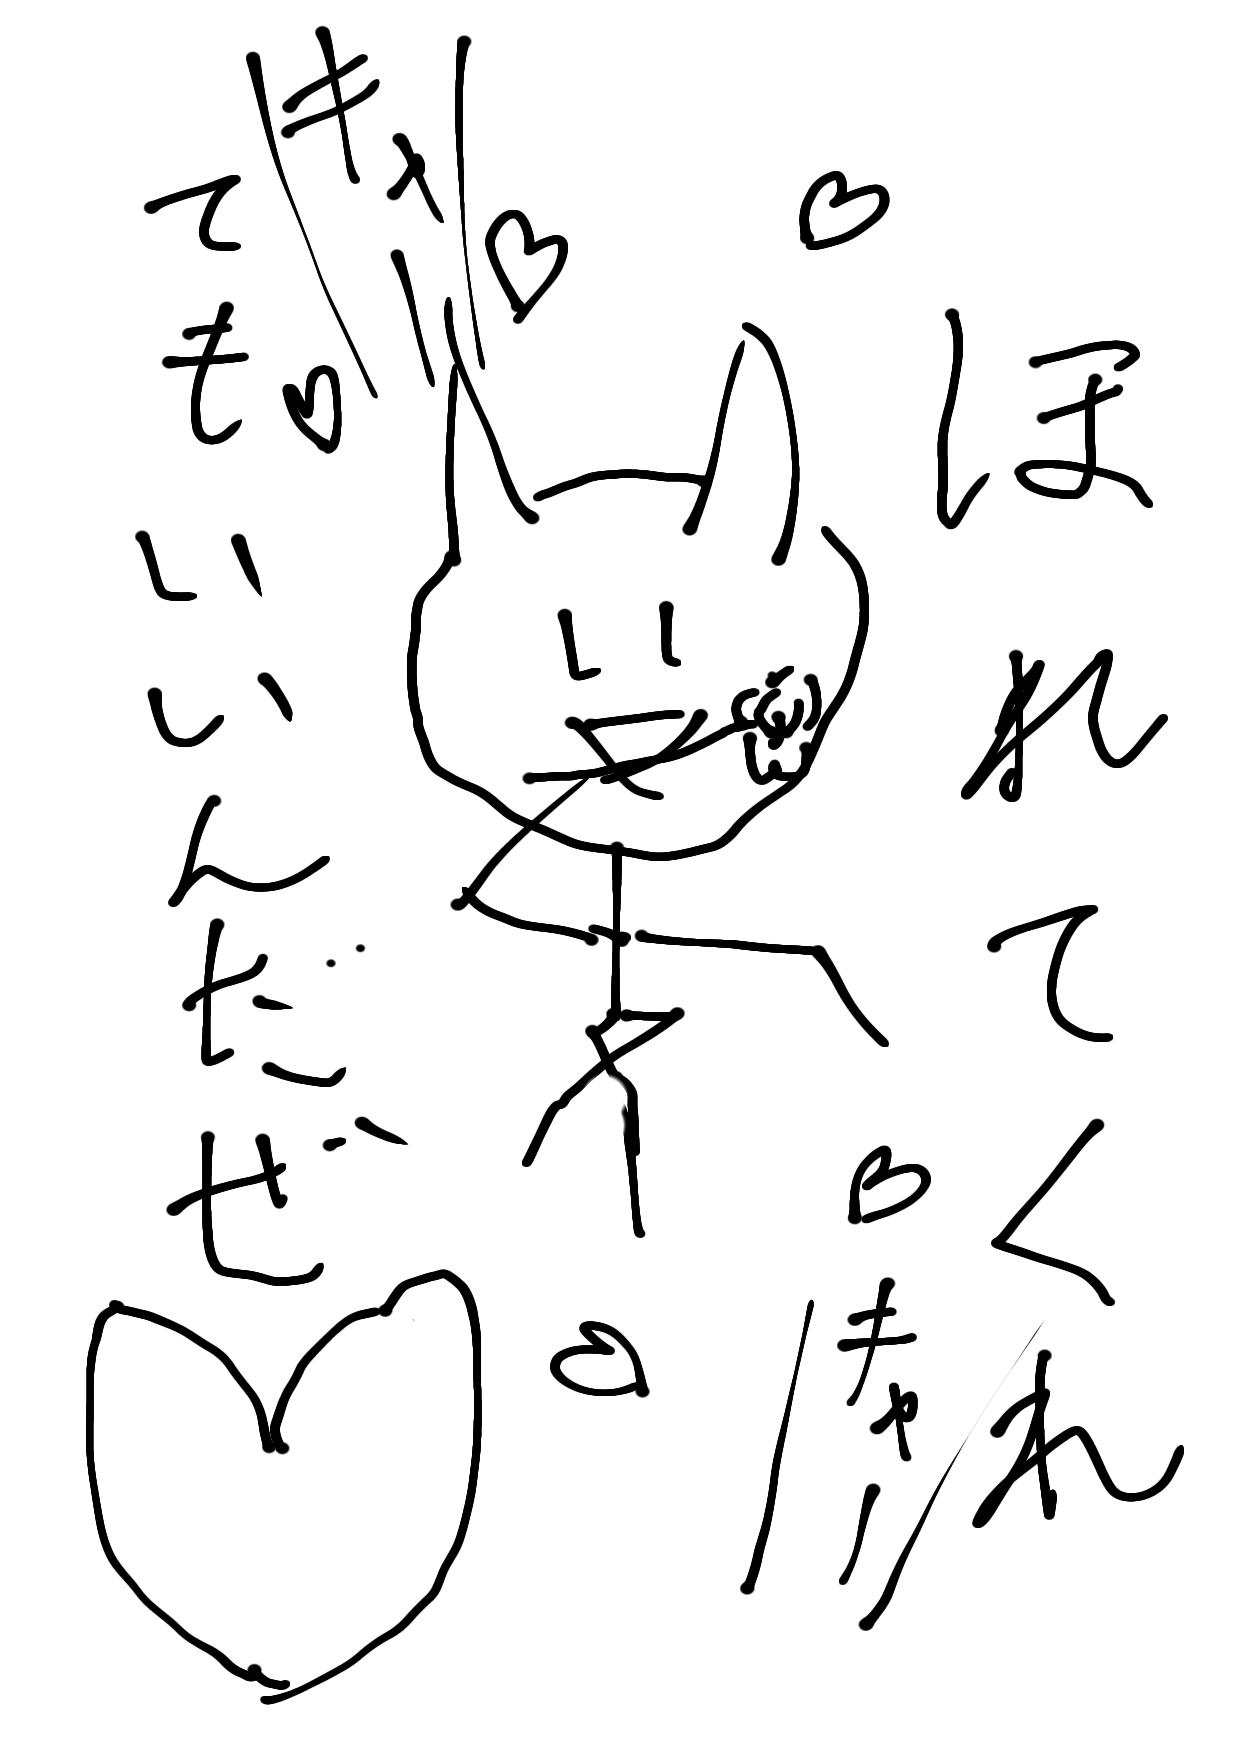 ほれてくれ
てもいいんだぜ
キャー
キャー